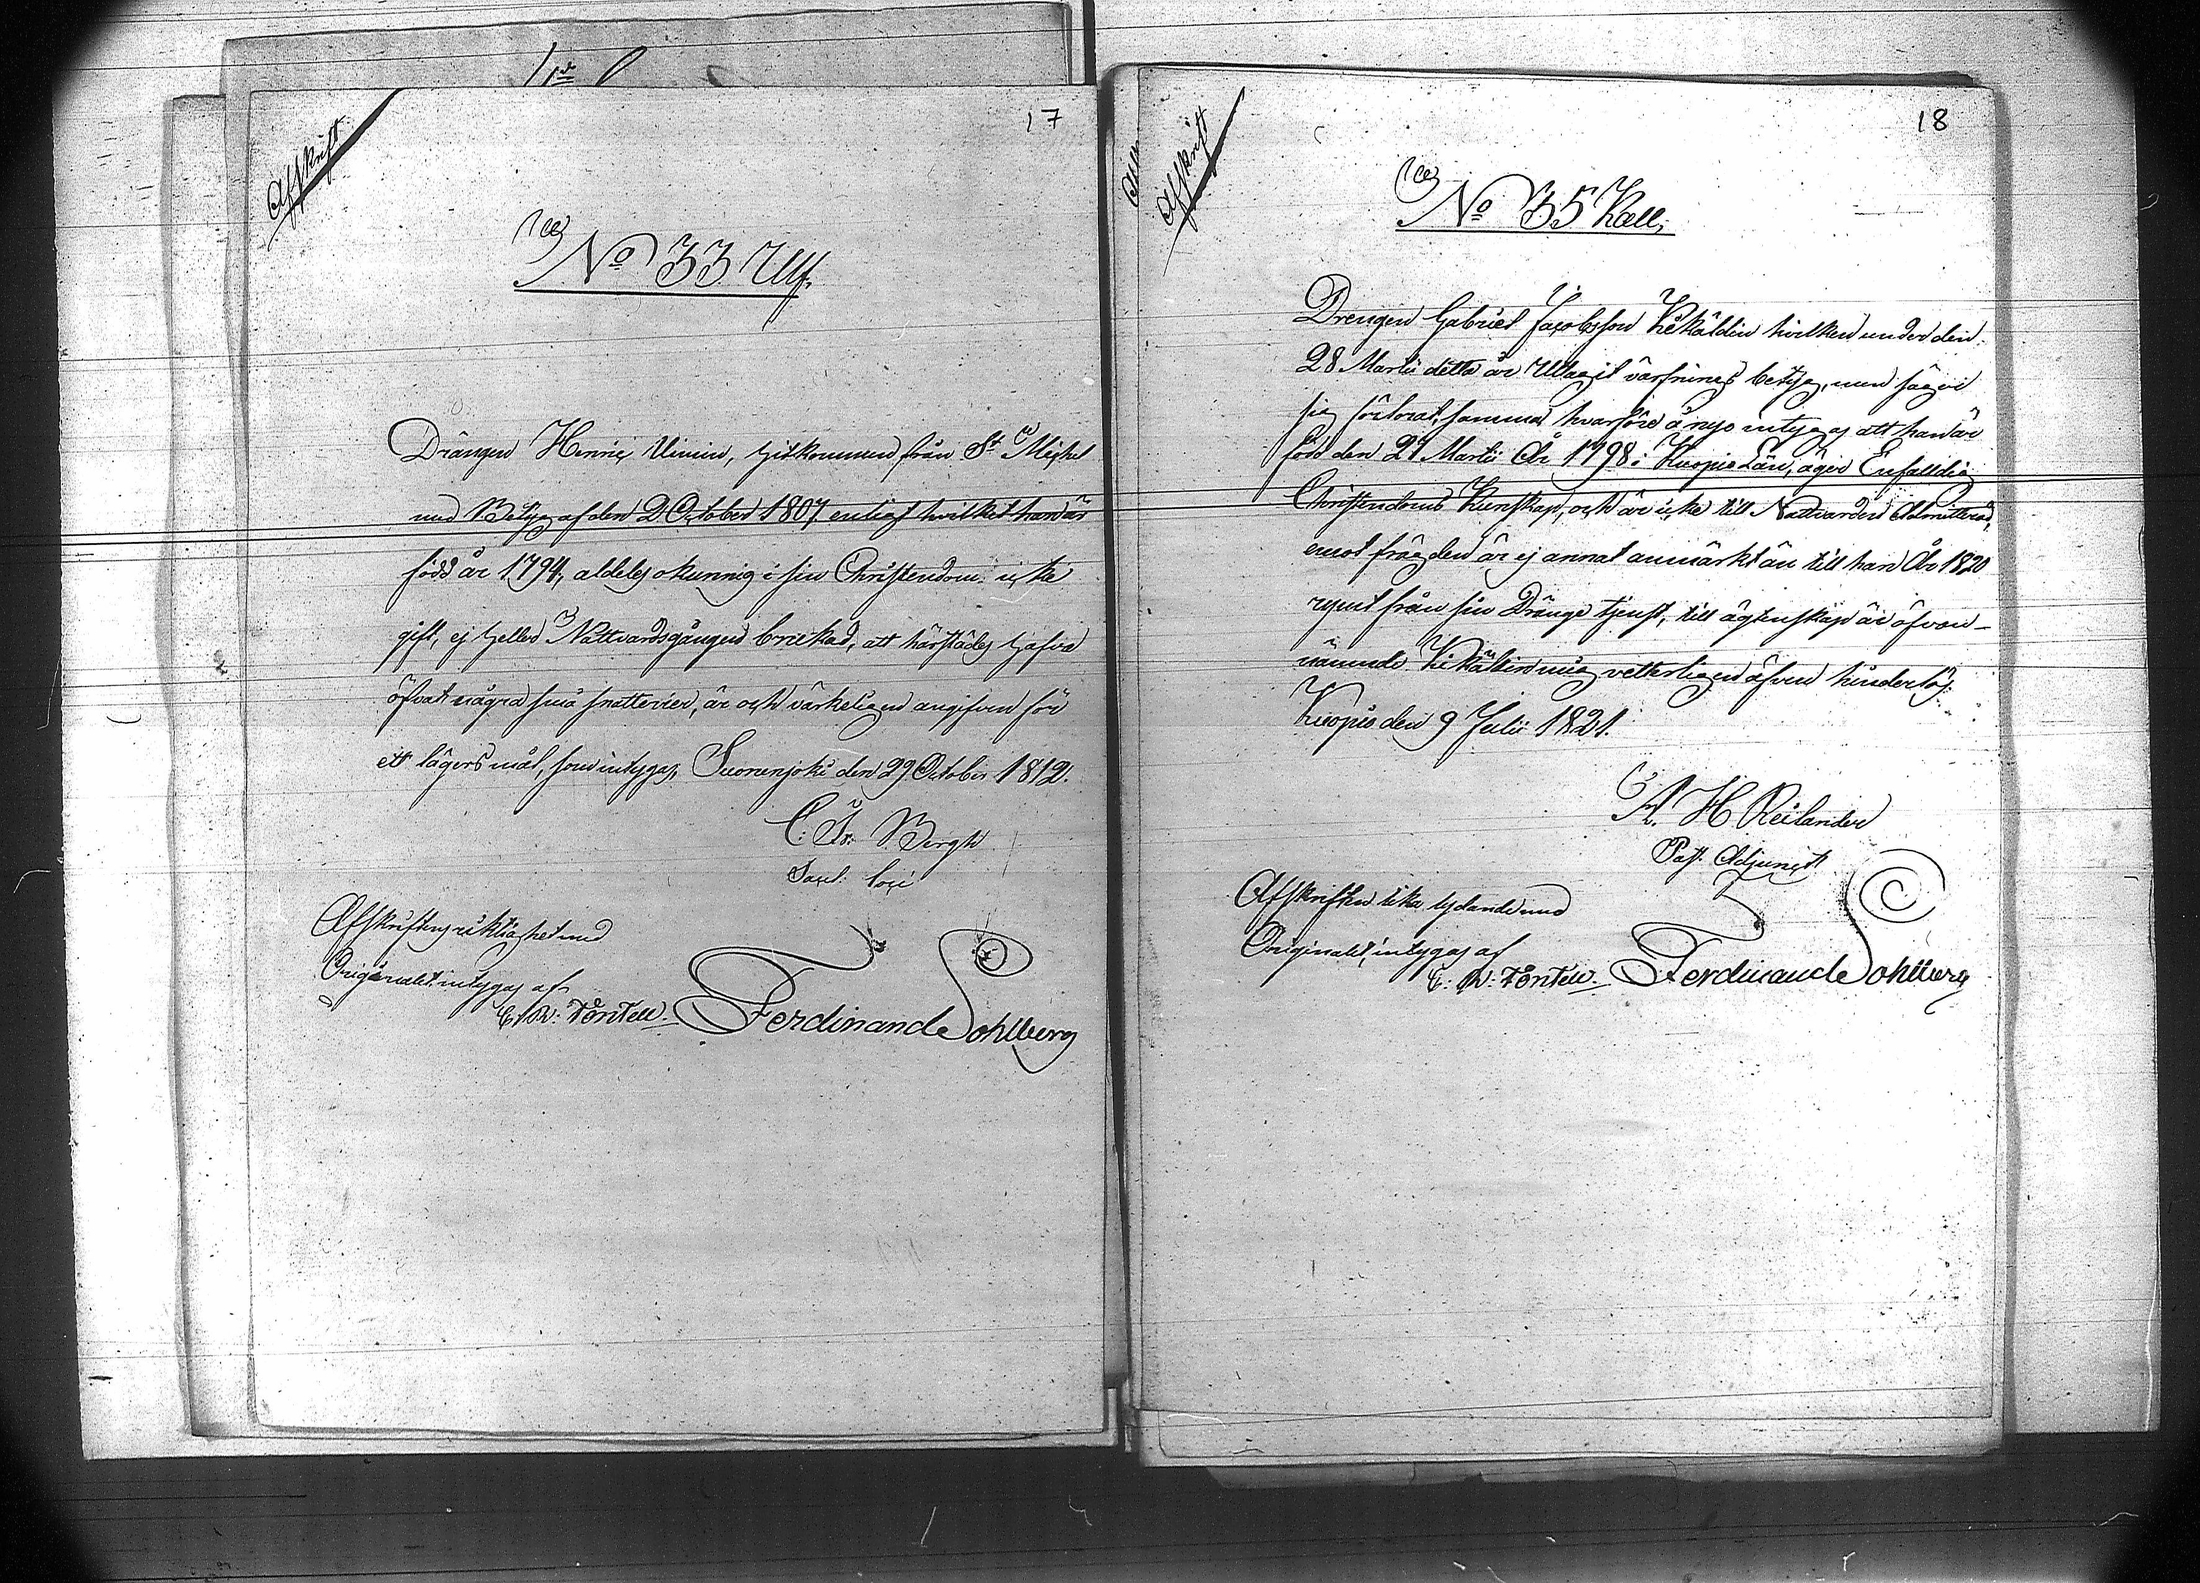 17
Afskrift
No 33 Ulf.
Drängen Henric Vinin, hitkommen från St Michel
med Betyg af den 2 October 1807 enligt hvilket han är
född år 1794, aldeles okunnig i sin Christendom, icke
gift, ej heller Nattvardsgången brukad, att härstädes hafva
öfvat några små snatterier, är och värkeligen angifven för
ett lägersmål, som intygas, Suonenjoki den 29 October 1812.
C. Fr. Bergh
Sacel. loci
Afskriftens riktighet med
Originalet intygas af
E. W. Fontell. Ferdinand Sohlberg
18
Afskrift
No 35 Kall.
Drengen Gabriel Jacobsson Kekäldin hvilken under den
28 Martii detta år Uttagit värfnings betyg, men säger
sig förlorat samma hvarföre å nyo intygas att han är
född den 21 Martii År 1798 i Kuopio Län, äger Enfalldig
Christendoms Kunskap, och är icke till Nattvarden Admitterad,
emot frägden är ej annat anmärkt än till han År 1820
rymt från sin Dränge tjenst, till ägtenskap är ofvan-
nämnde Kekäldin mig vetterligen äfven hinderlös.
Kuopio den 9 Julii 1821.
A. H. Reilander
Past. Adjunct
Afskriften lika lydande med
Originalet, intygas af
E. W. Fontell. Ferdinand Sohlberg